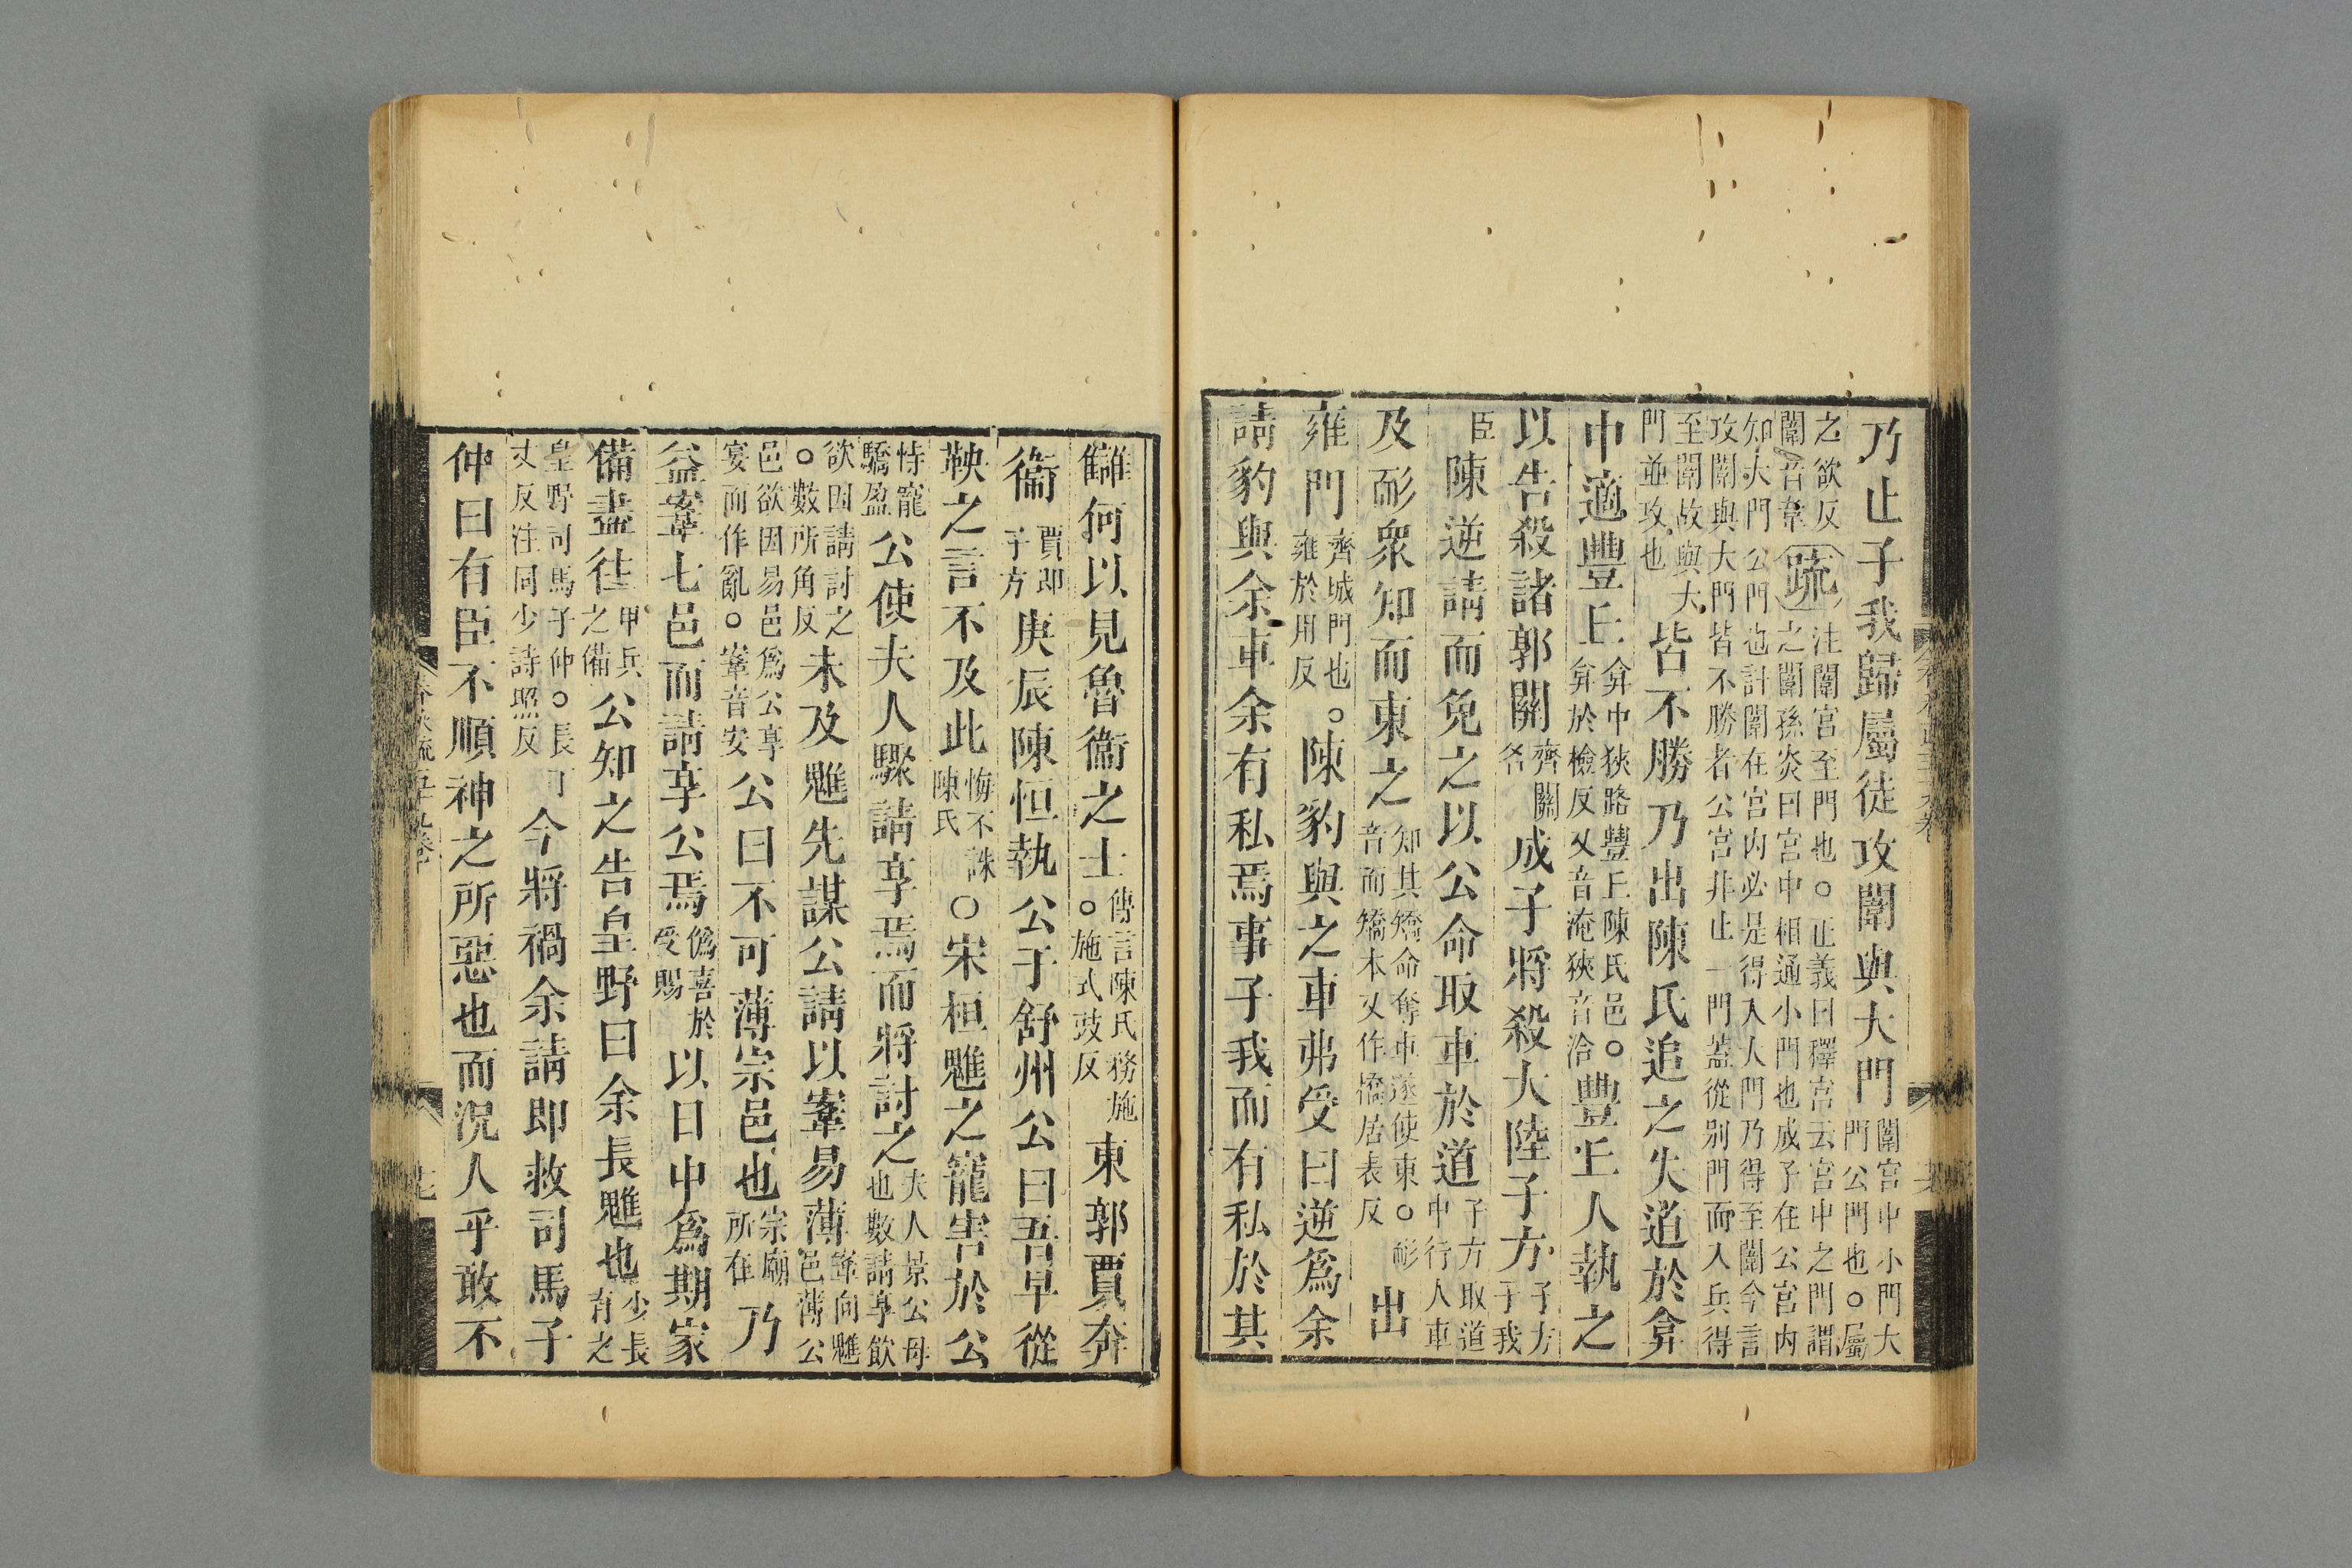 乃止子我歸屬徒攻闈與大門闈宮中小門大門公門也○屬
之欲反闈音韋疏注闈宮至門也○正義曰釋宮云宮中之門謂之闈孫炎曰宮中相通小門也成子在公宮內
知大門公門也計闈在宮內必是得入人門乃得至闈今言攻闈與大門皆不勝者公宮非止一門蓋從別門而入兵得
至闈故與大門並攻也皆不勝乃出陳氏追之失道於弇
中適豐丘弇中狹路豐丘陳氏邑○弇於檢反又音淹狹音洽豐丘人執之
以告殺諸郭關齊關名成子將殺大陸子方子方子我
臣陳逆請而免之以公命取車於道子方取道中行人車
及耏衆知而東之知其矯命奪車遂使東○耏音而矯本又作撟居表反出
雍門齊城門也雍於用反○陳豹與之車弗受曰逆爲余
請豹與余車余有私焉事子我而有私於其
讎何以見魯衞之士傳言陳氏務施○施式豉反東郭賈奔
衞賈即子方庚辰陳恒執公于舒州公曰吾早從
鞅之言不及此悔不誅陳氏○宋桓魋之寵害於公
恃寵驕盈公使夫人驟請享焉而將討之夫人景公母也數請享飲
欲因請討之○數所角反未及魋先謀公請以鞌易薄鞌向魋邑薄公
邑欲因易邑爲公享宴而作亂○鞌音安公曰不可薄宗邑也宗廟所在乃
益鞌七邑而請享公焉僞喜於受賜以日中爲期家
備盡往甲兵之備公知之告皇野曰余長魋也少長育之
皇野司馬子仲○長丁丈反注同少詩照反今將禍余請即救司馬子
仲曰有臣不順神之所惡也而況人乎敢不